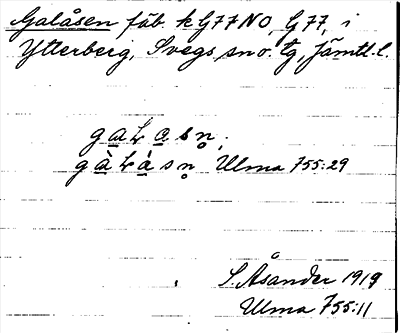 Galåsen fäb. k G77NO, G77, i
Ytterberg, Svegs sn o. tg, Jämtl. l.
Ulma 755:29
S. Åsander 1919
Ulma 755:11